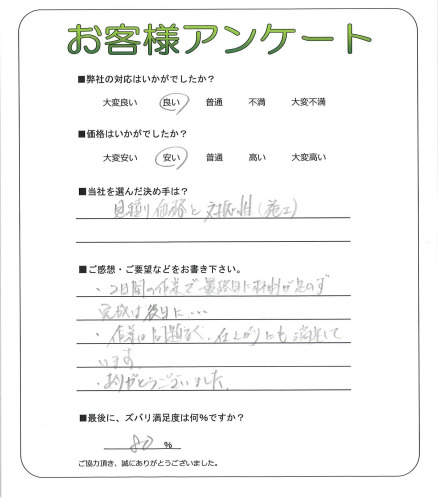 お客様アンケート
■弊社の対応はいかがでしたか？
大変良い 良い 普通 不満 大変不満
■価格はいかがでしたか？
大変安い 安い 普通 高い 大変高い
■当社を選んだ決め手は？
見積り価格と対応(施工)
■ご感想・ご要望などをお書き下さい。
・2日間の作業で最終日に材料が足らず
完成は後日に・・・
・作業は問題なく、仕上がりにも満足して
います。
・ありがとうございました。
■最後に、ズバリ満足度は何％ですか？
80 ％
ご協力頂き、誠にありがとうございました。